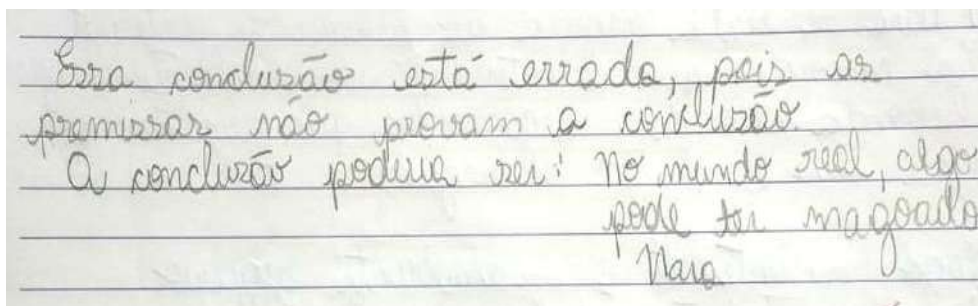 Essa conclusão está errada, pois as
premissas não provam a conclusão.
A conclusão poderia ser: No mundo real, algo
pode ter magoado
Nara